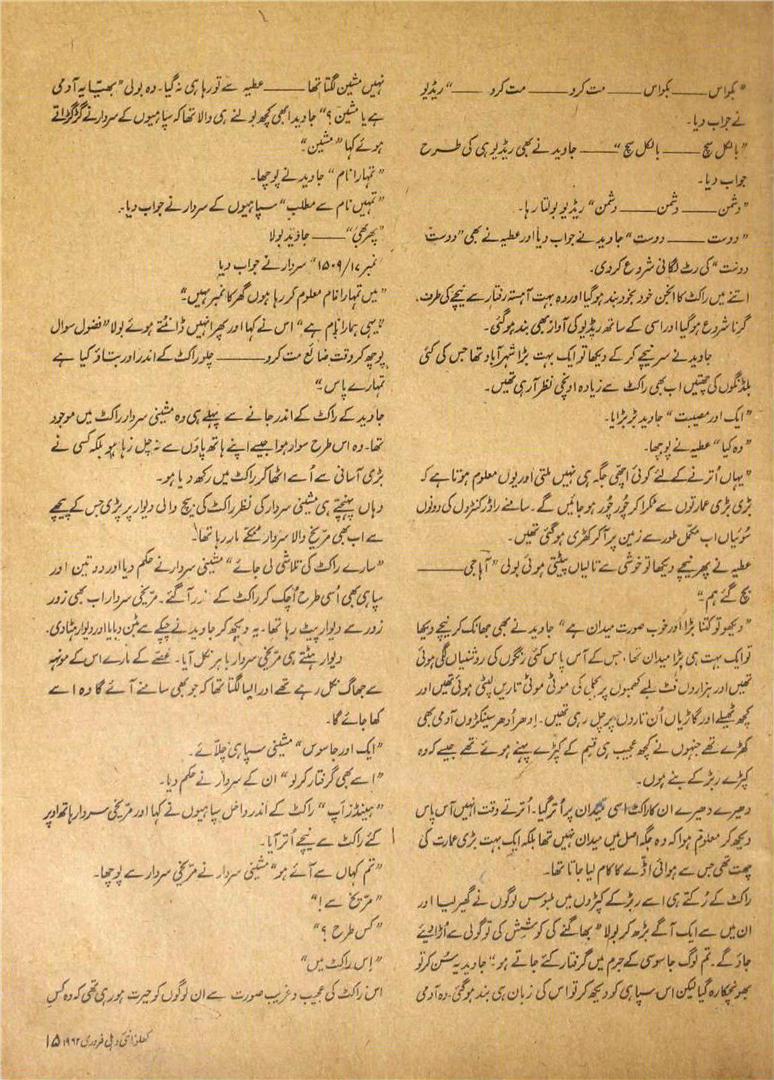 "بکواس ——— بکواس ——— مت کرو ——— مت کرو ——— " ریڈیو
نے جواب دیا۔
"بالکل سچ ——— بالکل سچ" ——— جاوید نے بھی ریڈیو ہی کی طرح
جواب دیا۔
"دشمن ——— دشمن ——— دشمن" ریڈیو بولتا رہا۔
"دوست ——— دوست" جاوید نے جواب دیا اور عطیہ نے بھی "دوست
دوست" کی رٹ لگانی شروع کر دی۔
اتنے میں راکٹ کا انجن خود بخود بند ہو گیا اور وہ بہت آہستہ رفتار سے نیچے کی طرف،
گرنا شروع ہو گیا اور اسی کے ساتھ ریڈیو کی آواز بھی بند ہو گئی۔
جاوید نے سر نیچے کر کے دیکھا تو ایک بہت بڑا شہر آباد تھا جس کی کئی
بلڈنگوں کی چھتیں اب بھی راکٹ سے زیادہ اونچی نظر آ رہی تھیں۔
"ایک اور مصیبت" جاوید بڑبڑایا۔
"وہ کیا" عطیہ نے پوچھا۔
"یہاں اُترنے کے لئے کوئی اچھی جگہ ہی نہیں ملتی اور یوں معلوم ہوتا ہے کہ
بڑی بڑی عمارتوں سے ٹکرا کر چُور چُور ہو جائیں گے۔ سامنے راڈر کنٹرول کی دونوں
سُوئیاں اب مکمل طور سے زمین پر آ کر کھڑی ہو گئی تھیں۔
عطیہ نے پھر نیچے دیکھا تو خوشی سے تالیاں پیٹتی ہوئی بولی "آہا جی ———
بچ گئے ہم۔"
"دیکھو تو کتنا بڑا اور خوب صورت میدان ہے" جاوید نے بھی جھانک کر نیچے دیکھا
تو ایک بہت ہی بڑا میدان تھا، جس کے آس پاس کئی رنگوں کی روشنیاں لگی ہوئی
تھیں اور ہزاروں فٹ لمبے کھمبوں پر بجلی کی موٹی موٹی تاریں لپٹی ہوئی تھیں اور
کچھ ٹھیلے اور گاڑیاں اُن تاروں پر چل رہی تھیں۔ اِدھر اُدھر سینکڑوں آدمی بھی
کھڑے تھے جنہوں نے کچھ عجیب ہی قسم کے کپڑے پہنے ہوئے تھے جیسے کہ وہ
کپڑے ربڑ کے بنے ہوں۔
دھیرے دھیرے ان کا راکٹ اسی میدان پر اُتر گیا۔ اُترتے وقت انہیں آس پاس
دیکھ کر معلوم ہوا کہ وہ جگہ اصل میں میدان نہیں تھا بلکہ ایک بہت بڑی عمارت کی
چھت تھی جس سے ہوائی اڈے کا کام لیا جاتا تھا۔
راکٹ کے رُکتے ہی اسے ربڑ کے کپڑوں میں ملبوس لوگوں نے گھیر لیا اور
ان میں سے ایک آگے بڑھ کر بولا "بھاگنے کی کوشش کی تو گولی سے اُڑا دیئے
جاؤ گے۔ تم لوگ جاسوسی کے جرم میں گرفتار کئے جاتے ہو۔" جاوید یہ سُن کر تو
بھونچکا رہ گیا لیکن اس سپاہی کو دیکھ کر تو اس کی زبان ہی بند ہو گئی۔ وہ آدمی
نہیں مشین لگتا تھا ——— عطیہ سے تو رہا ہی نہ گیا۔ وہ بولی "بھیّا یہ آدمی
ہے یا مشین؟" جاوید ابھی کچھ بولنے ہی والا تھا کہ سپاہیوں کے سردار نے گڑگڑاتے
ہوئے کہا "مشین۔"
"تمہارا نام" جاوید نے پوچھا۔
"تمہیں نام سے مطلب" سپاہیوں کے سردار نے جواب دیا۔
"پھر بھی" ——— جاوید بولا
"نمبر ۱۵۰۹/۱۷" سردار نے جواب دیا
"میں تمہارا نام معلوم کر رہا ہوں گھر کا نمبر نہیں۔"
"یہی ہمارا نام ہے" اس نے کہا اور پھر انہیں ڈانٹتے ہوئے بولا "فضول سوال
پوچھ کر وقت ضائع مت کرو ——— چلو راکٹ کے اندر اور بتاؤ کیا ہے
تمہارے پاس۔"
جاوید کے راکٹ کے اندر جانے سے پہلے ہی وہ مشینی سردار راکٹ میں موجود
تھا۔ وہ اس طرح سوار ہوا جیسے اپنے ہاتھ پاؤں سے نہ چل رہا ہو بلکہ کسی نے
بڑی آسانی سے اُسے اٹھا کر راکٹ میں رکھ دیا ہو۔
وہاں پہنچتے ہی مشینی سردار کی نظر راکٹ کی بیچ والی دیوار پر پڑی جس کے پیچھے
سے اب بھی مریخ والا سردار مُکّے مار رہا تھا۔
"سارے راکٹ کی تلاشی لی جائے" مشینی سردار نے حکم دیا اور دو تین اور
سپاہی بھی اُسی طرح اُچک کر راکٹ کے اندر آ گئے۔ مریخی سردار اب بھی زور
زور سے دیوار پیٹ رہا تھا۔ یہ دیکھ کر جاوید نے چپکے سے بٹن دبایا اور دیوار ہٹا دی۔
دیوار ہٹتے ہی مریخی سردار باہر نکل آیا۔ غصّے کے مارے اس کے مونہہ
سے جھاگ نکل رہے تھے اور ایسا لگتا تھا کہ جو بھی سامنے آئے گا وہ اسے
کھا جائے گا۔
"ایک اور جاسوس" مشینی سپاہی چلّائے۔
"اسے بھی گرفتار کر لو" ان کے سردار نے حکم دیا۔
"ہینڈز اَپ" راکٹ کے اندر داخل سپاہیوں نے کہا اور مریخی سردار ہاتھ اوپر
کئے راکٹ سے نیچے اُتر آیا۔
"تم کہاں سے آئے ہو" مشینی سردار نے مریخی سردار سے پوچھا۔
"مریخ سے!"
"کس طرح؟"
"اِس راکٹ میں"
اس راکٹ کی عجیب و غریب صورت سے ان لوگوں کو حیرت ہو رہی تھی کہ وہ کس
کھلونا نئی دہلی فروری ۱۹۶۲ ۱۵